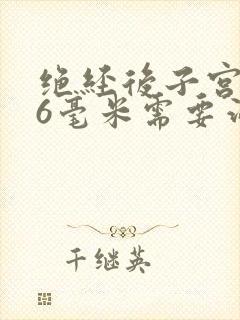 绝经後子宫
6毫米需要
千继英